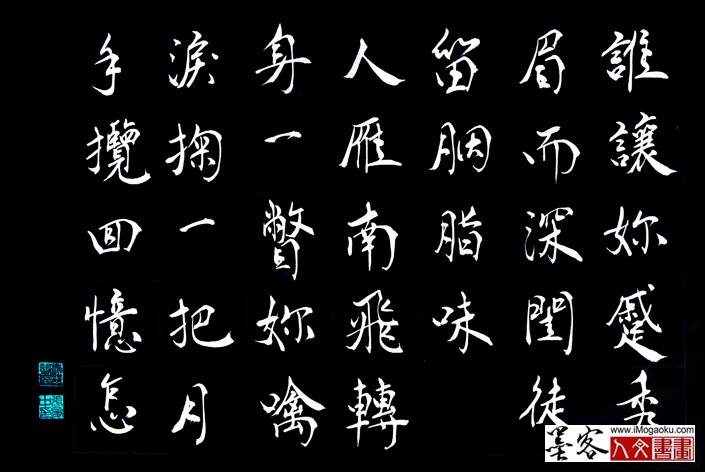 誰讓妳蹙秀
眉而深閨徒
留胭脂味
人雁南飛轉
身一瞥妳噙
淚掬一把月
手攬回憶怎
墨客
www.iMogaoku.com
人文書畫